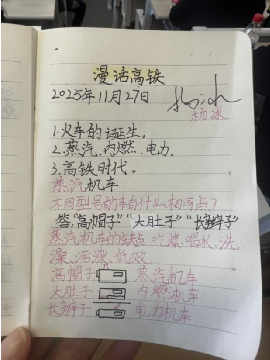 漫话高铁
2025年11月27日
杨冰
1.火车的诞生。
2.蒸汽、内燃、电力.
3.高铁时代。
蒸汽机车
不同型号的车有什么相同点?
答:"高帽子""大肚子""长辫子"
蒸汽机车的缺点 吃煤、喝水、洗
澡、污染、低效
高帽子 蒸汽机车
大肚子 内燃机车
长辫子 电力机车